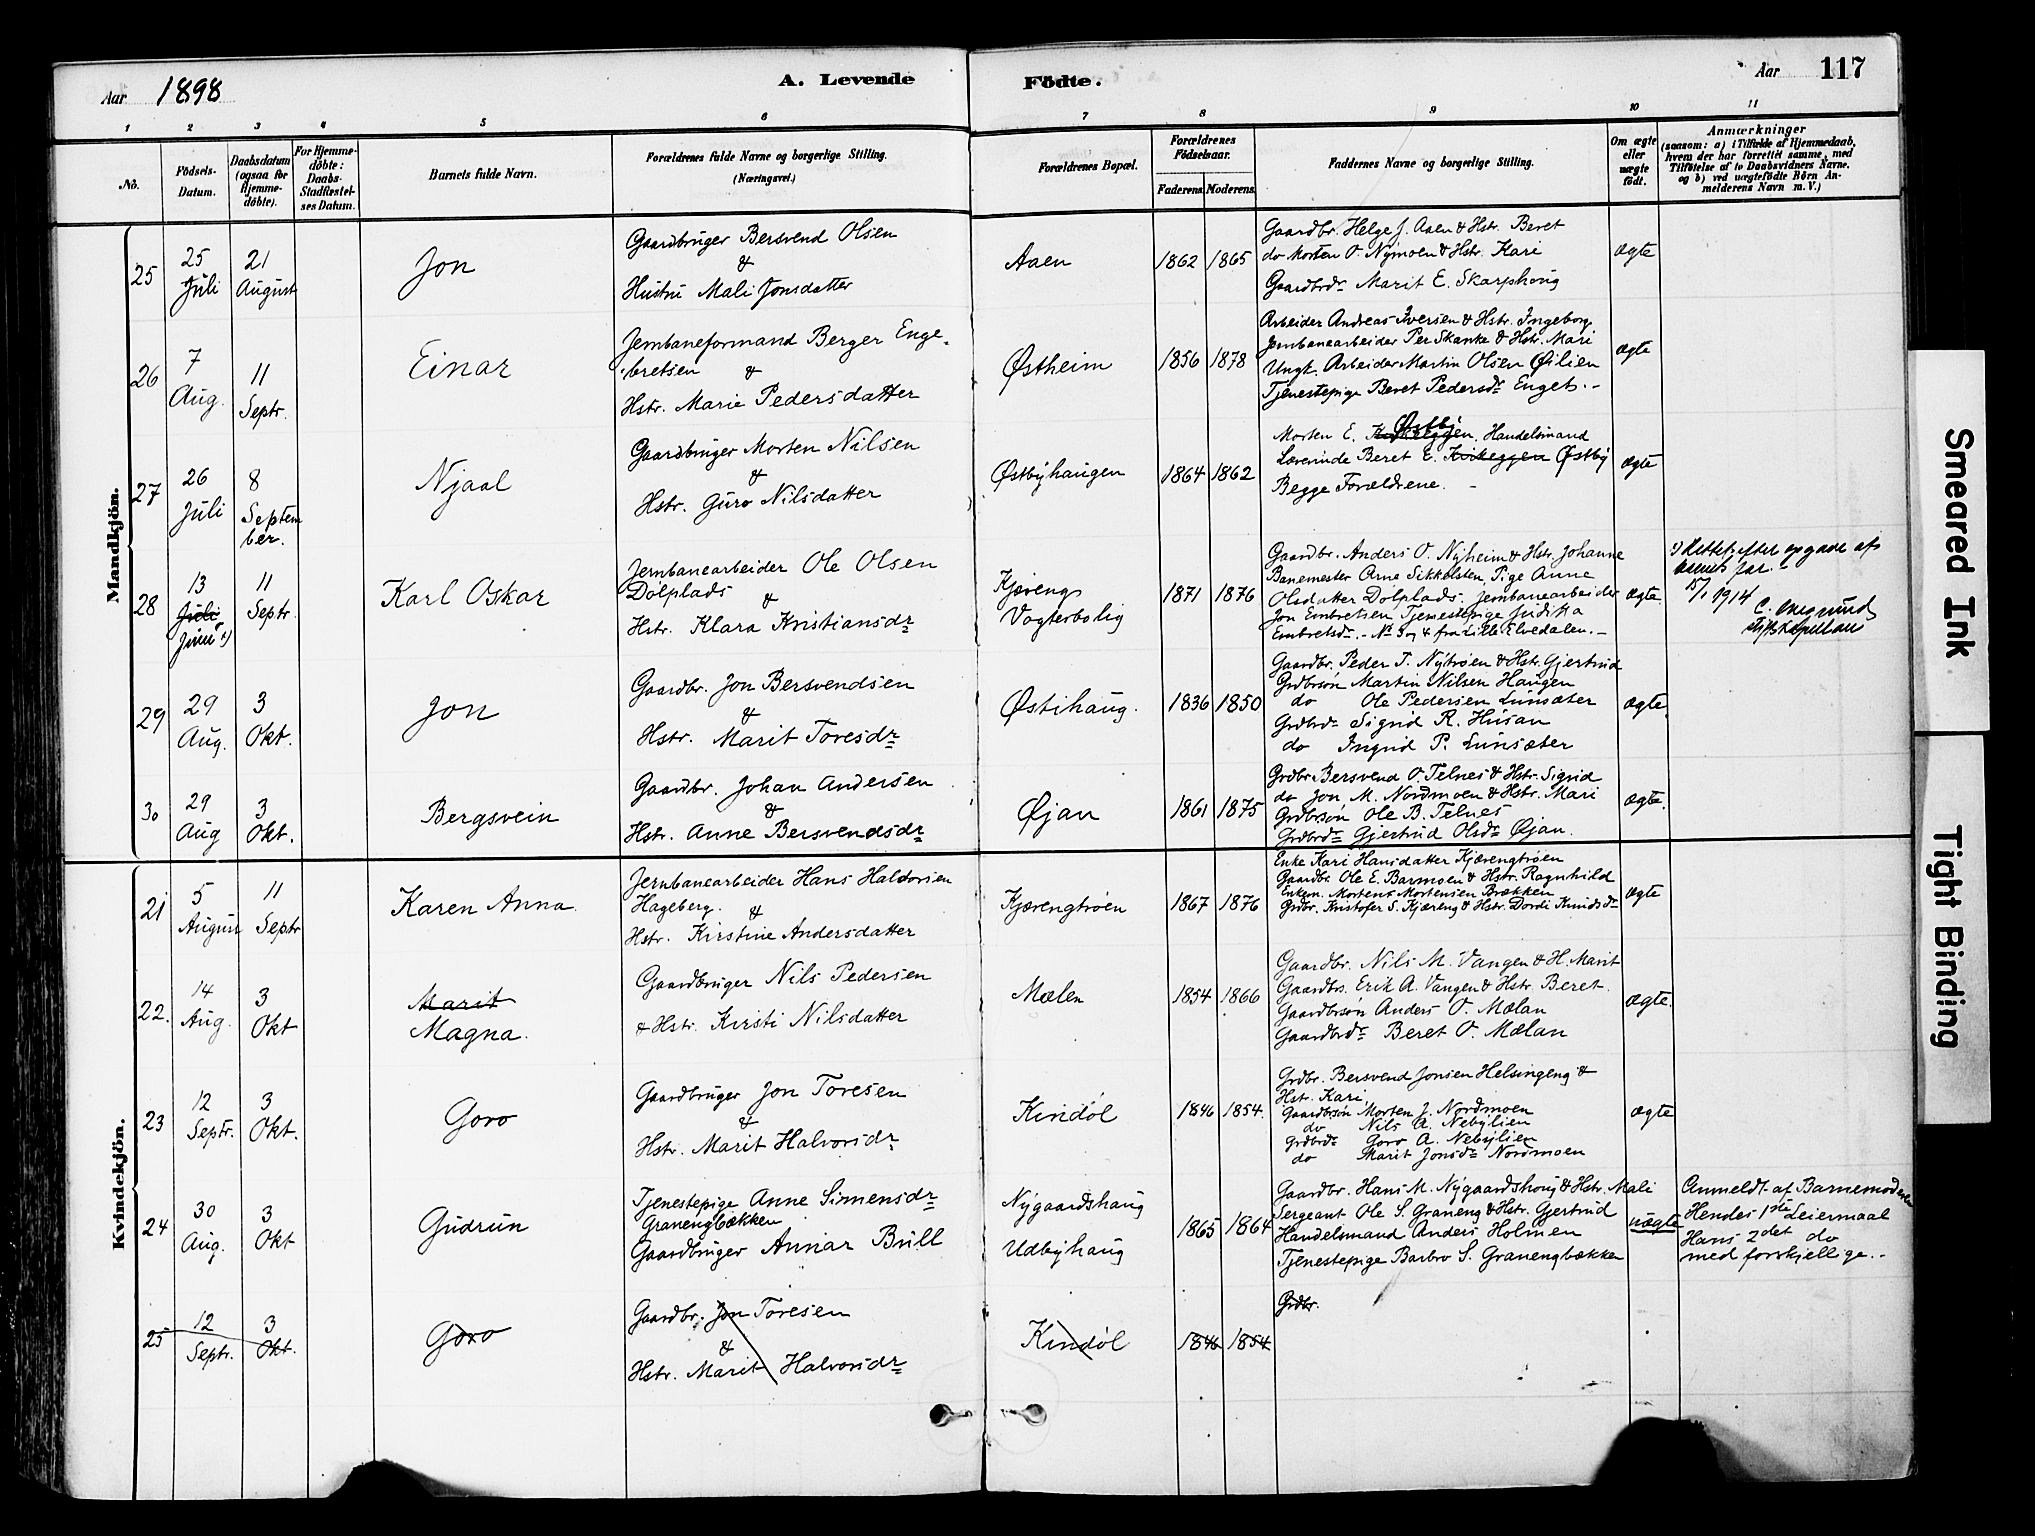 Aar 1898
A. Levende Födte.
Aar 117
1 2 3 4 5 6 7 8 9 10 11
No.
Födsels-
Datum.
Daabsdatum
(ogsaa for
Hjemme-
döbte).
For Hjemme-
döbte:
Daabs-
Stadfæstel-
ses Datum.
Barnets fulde Navn.
Forældrenes fulde Navne og borgerlige Stilling.
(Næringsvei.)
Forældrenes Bopæl.
Forældrenes
Födselsaar.
Faderens. Moderens.
Faddernes Navne og borgerlige Stilling.
Om ægte
eller
uægte
födt.
Anmærkninger
(saasom: a) i Tilfælde af Hjemmedaab,
hvem der har forrettet samme, med
Tilföielse af to Daabsvidners Navne,
og b) ved uægtefödte Börn An-
melderens Navn m. V.)
Mandkjön.
25
25
Juli
21
August
Jon
Gaardbruger Bersvend Olsen
&
Hustru Mali Jonsdatter
Aaen
1862 1865
Gaardbr. Helge J. Aaen & Hstr. Beret
do Morten O. Nymoen & Hstr. Kari
Gaardbrdr Marit E. Skarphoug
ægte
26
7
Aug.
11
Septr.
Einar
Jernbaneformand Berger Enge-
bretsen &
Hstr. Marie Pedersdatter
Østheim
1856 1878
Arbeider Andreas Iversen & Hstr. Ingeborg
Jernbanearbeider Per Skanke & Hstr. Mari
Ungk. Arbeider Martin Olsen Øilien
Tjenestepige Beret Pedersdr Enget. -
ægte
27
26
Juli
8
Septem
ber.
Njaal
Gaardbruger Morten Nilsen
&
Hstr. Guro Nilsdatter
Østbyhaugen
1864 1862
Østby
Morten E. Kvikeggen, Handelsmand
Lærerinde Beret E. Kvikeggen Østby
Begge Forældrene. -
ægte
28
13
Juli
Juni 1)
11
Septr.
Karl Oskar
Jernbanearbeider Ole Olsen
Dölplads &
Hstr. Klara Kristiansdr
Kjærengs
Vogterbolig
1871 1876
Gaardbr. Anders O. Nyheim & Hstr. Johanne
Banemester Arne Sikkelsten, Pige Anne
Olsdatter Dölplads, Jernbanearbeider
Jon Embretsen, Tjenestepige Juditta
Embretsdr. - No 3 og 4 fra Lille Elvedalen. -
ægte.
1) Rettet efter opgave af
barnets far. -
15/1 1914
29
29
Aug.
3
Okt.
Jon
Gaardbr. Jon Bersvendsen
&
Hstr. Marit Toresdr
Østihaug.
1836 1850
Gaardbr. Peder T. Nytröen & Hstr. Gjertrud
Grdbrsön Martin Nilsen Haugen
do Ole Pedersen Lunsæter
Grdbrdr Sigrid R. Husan
do Ingrid P. Lunsæter
ægte.
30
29
Aug
3
Okt.
Bergsvein
Gaardbr. Johan Andersen
&
Hstr. Anne Bersvendsdr
Øjan
1861 1875
Grdbr Bersvend O. Telnes & Hstr. Sigrid
do Jon M. Nordmoen & Hstr. Mari
Grdbrsön Ole B. Telnes
Grdbrdr Gjertrud Olsdr Øjan.
ægte.
Kvindekjön.
21
5
August
11
Septr
Karen Anna
Jernbanearbeider Hans Haldorsen
Hageberg. &
Hstr. Kirstine Andersdatter
Kjærengtröen
1867 1876
Enke Kari Hansdatter Kjærengtröen
Gaardbr. Ole E. Barmoen & Hstr. Ragnhild
Enkem. Morten Mortensen Brækken
Grdbr. Kristofer S. Kjæreng & Hstr. Dordi Knudsdr
ægte
22.
14
Aug.
3
Okt
Marit
Magna.
Gaardbruger Nils Pedersen
& Hstr. Kirsti Nilsdatter
Mælen
1854 1866
Gaardbr. Nils M. Vangen & H. Marit
Gaardbrs. Erik A. Vangen & Hstr. Beret
Gaardbrsön Anders O. Mælan
Gaardbrdr Beret O. Mælan
ægte.
23
12
Septr.
3
Okt.
Goro
Gaardbruger Jon Toresen
&
Hstr. Marit Halvorsdr
Kindöl
1846 1854.
Grdbr. Bersvend Jonsen Helsingeng &
Hstr. Kari,
Gaardbrsön Morten J. Nordmoen
do Nils A. Nebylien
Grdbrdr Goro A. Nebylien
do Marit Jonsdr Nordmoen
ægte
24
30
Aug.
3
Okt
Gudrun
Tjenestepige Anne Simensdr
Granengbækken
Gaardbruger Annar Brill
Nygaardshaug
Udbyhaug
1865 1864
Gaardbr. Hans M. Nygaardshoug & Hstr. Mali
Sergeant Ole S. Graneng & Hstr. Gjertrud
Handelsmand Anders Holmen
Tjenestepige Barbro S. Granengbækken
uægte
Anmeldt af Barnemoderen
Hendes 1ste Leiermaal
Hans 2det do
med forskjellige. -
25
12
Septr.
3
Okt.
Goro
Gaardbr. Jon Toresen
&
Hstr. Marit Halvorsdr
Kindöl
1846 1854
Grdbr.
Smeared Ink
Tight Binding